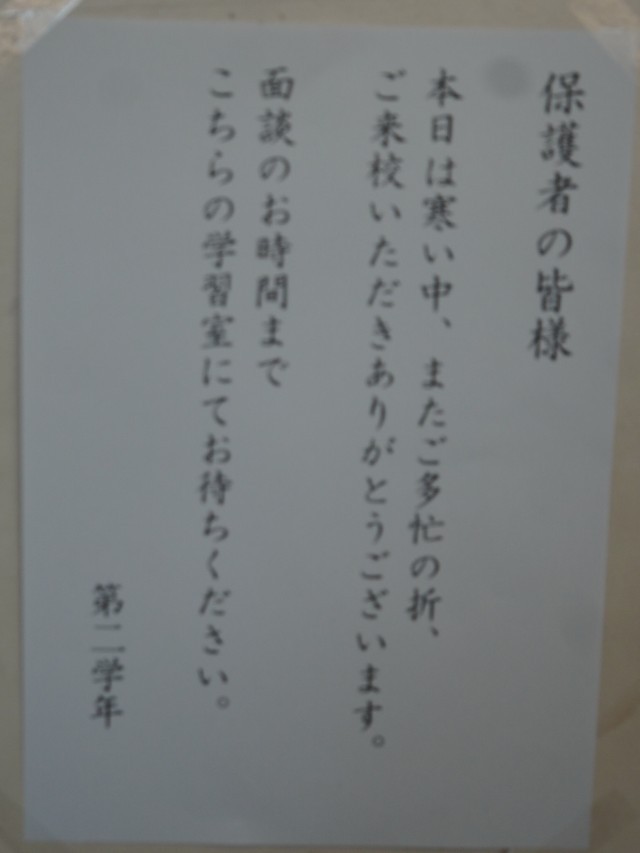 保護者の皆様
本日は寒い中、またご多忙の折、
ご来校いただきありがとうございます。
面談のお時間まで
こちらの学習室にてお待ちください。
第二学年